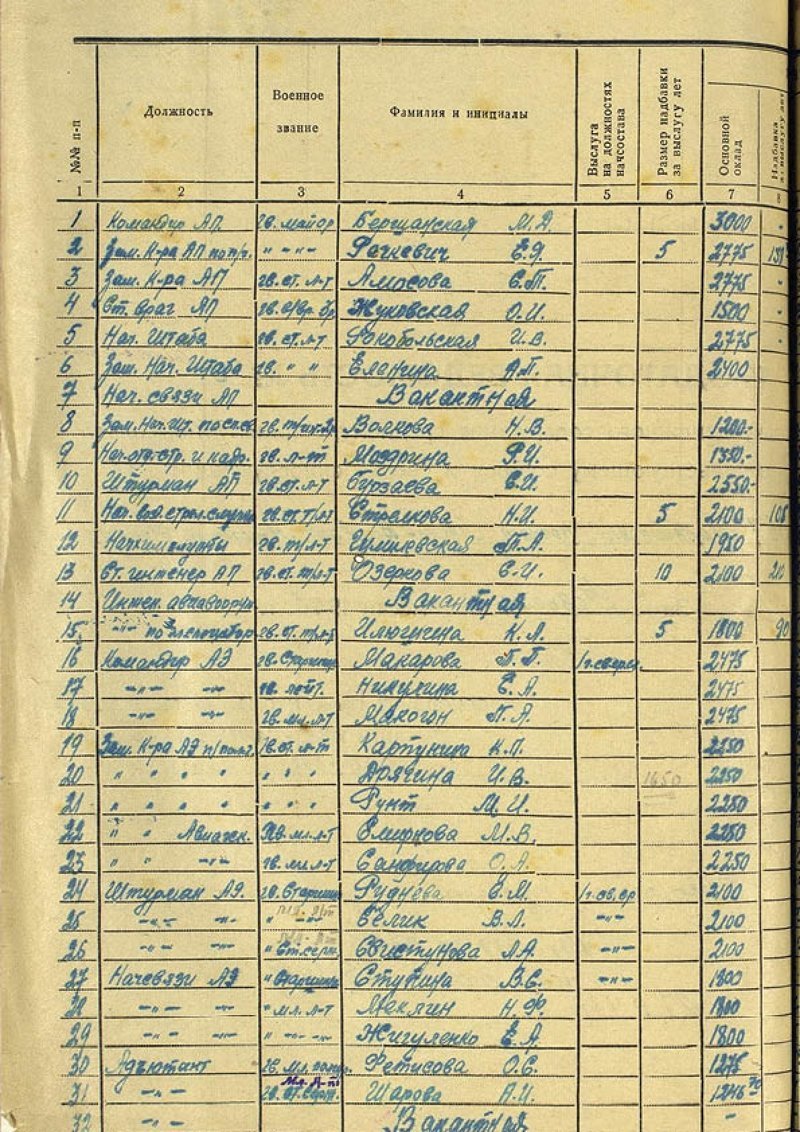 №№ п-п Должность Военное звание Фамилия и инициалы Выслуга на должностях начсостава Размер надбавки за выслугу лет Основной оклад Надбавка за выслугу лет
1 2 3 4 5 6 7 8
1 Командир АП гв. майор Бершанская 3000
2 Зам. К-ра АП по п/ч. " - " - " Рачкевич Е.Я. 5 2775
3 Зам. К-ра АП гв. ст. л-т Амосова С.Т. 2775
4 Ст. врач АП Жуковская О.И. 1500
5 Нач. Штаба гв. ст. л-т Рокобольская И.В. 2775
6 Зам. Нач. Штаба гв. " " Еланчина А.П. 2400
7 Нач. связи АП Вакантная
8 Зам. Нач. Шт. по спец. Волкова Н.В. 1200.-
9 гв. л-т Моздрина Р.И.
10 Штурман АП гв. ст. л-т С.И. 2550.-
11 гв. ст. т/л-т Стрелкова Н.И. 5 2100 105
12 Начхимслужбы гв. т/л-т Т.А. 1950
13 Ст. инженер АП гв. ст. т/л-т Озеркова С.И. 10 2100 210
14 Инжен. авиавооруж. Вакантная
15. -"- гв. ст. т/л-т Илюшина К.А. 5 1800 90
16 Командир АЭ гв. Старшина Макарова Т.П. 2475
17 -"- -"- Никулина Е.А. 2475
18 -"- -"- гв. мл. л-т Макогон П.А. 2475
19 Зам. К-ра АЭ гв. ст. л-т Карпунина К.П. 2250
20 " " " " " " " Дрячина И.В. 1650 2250
21 " " " " " " " Рунт М.И. 2250
22 " " Авиаэск. гв. мл. л-т Смирнова М.В. 2250
23 " " -"- гв. мл. л-т Санфирова О.А. 2250
24 Штурман АЭ. гв. Старшина Руднева Е.М. 2100
25 -"- -"- " Белик В.Л. -"- 2100
26 -"- -"- " Ст. серж. Свистунова -"- 2100
27 Начсвязи АЭ " Старшина Ступина В.С. -"- 1800
28 -"- -"- " мл. л-т Меклин Н.Ф. 1800
29 -"- -"- " -"- Жигуленко Е.А. 1800
30 Адъютант гв. мл. Фетисова О.С. 1275
31 -"- мл. л-т гв. ст. серж. Шарова А.И.
32 -"- Вакантная -